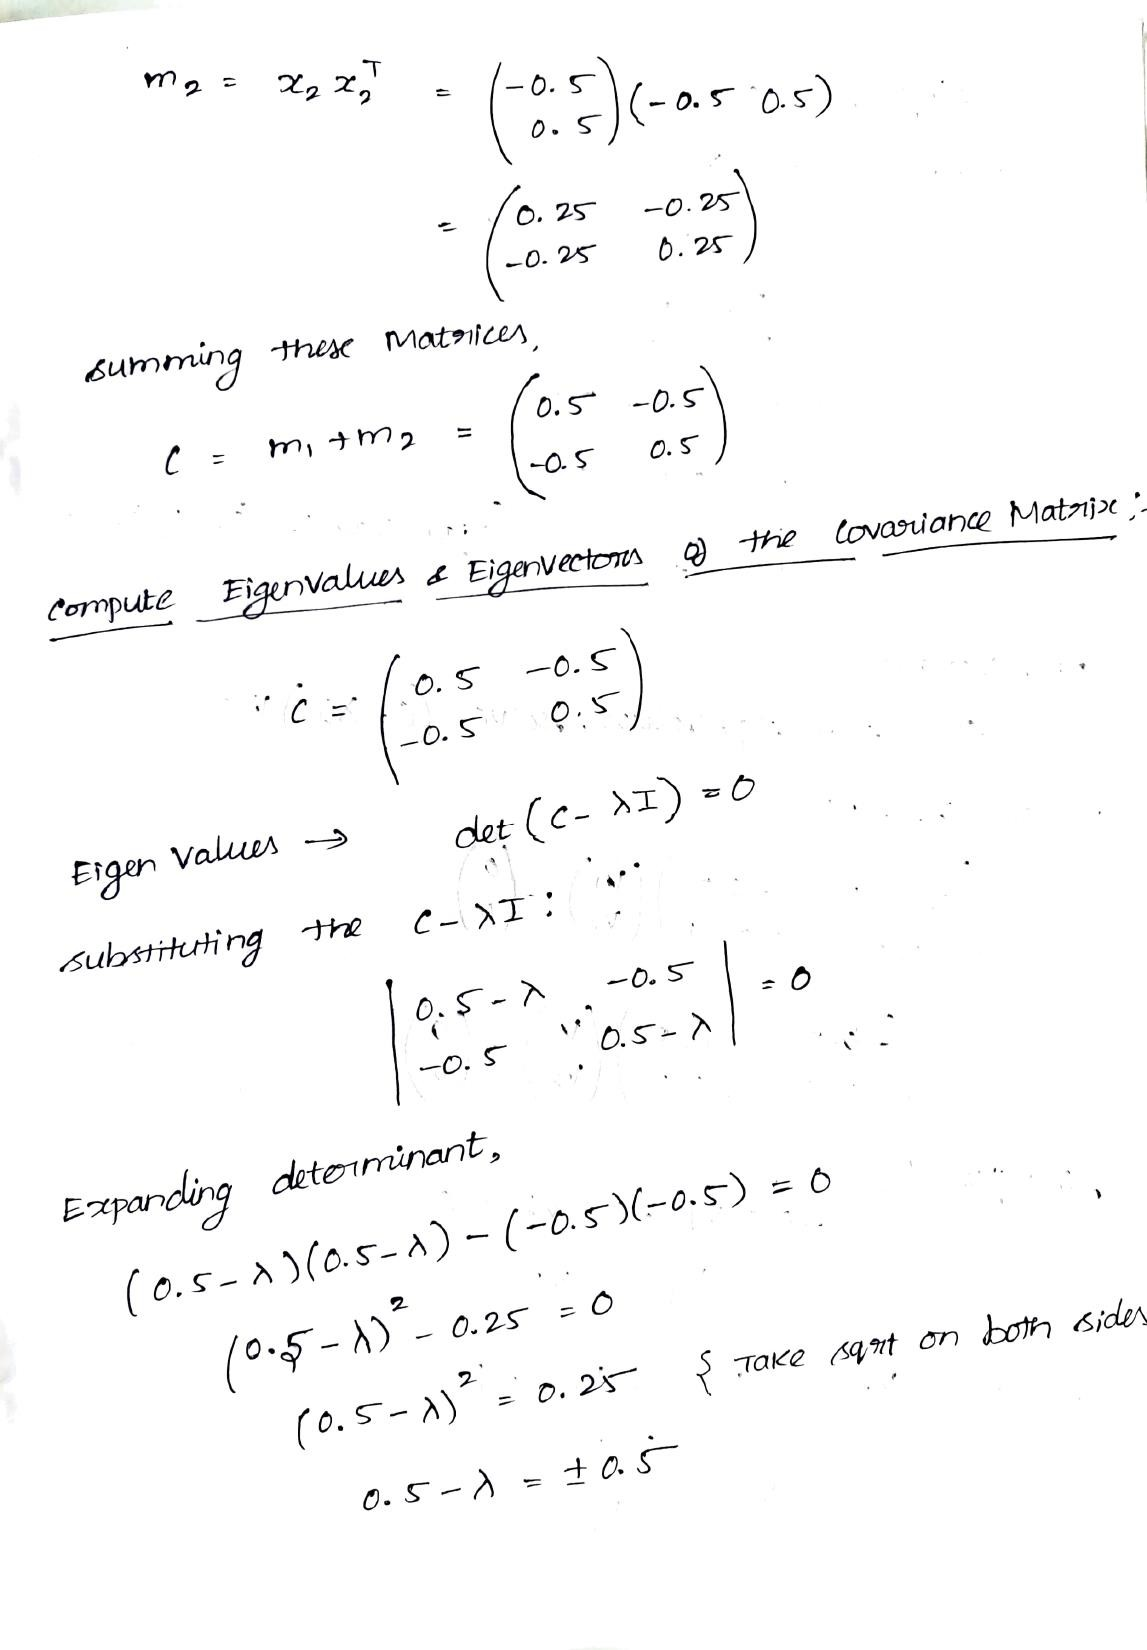 m₂ = x₂ x₂ᵀ = (-0.5 0.5) (-0.5 0.5)
= (0.25 -0.25
-0.25 0.25)
summing these Matrices,
C = m₁ + m₂ = (0.5 -0.5
-0.5 0.5)
Compute Eigenvalues & Eigenvectors of the Covariance Matrix :-
∵ C = (0.5 -0.5
-0.5 0.5)
Eigen values → det (C - λI) = 0
substituting the C - λI :
| 0.5 - λ -0.5 | = 0
| -0.5 0.5 - λ |
Expanding determinant,
(0.5 - λ)(0.5 - λ) - (-0.5)(-0.5) = 0
(0.5 - λ)² - 0.25 = 0
(0.5 - λ)² = 0.25 { Take sqrt on both sides
0.5 - λ = ± 0.5